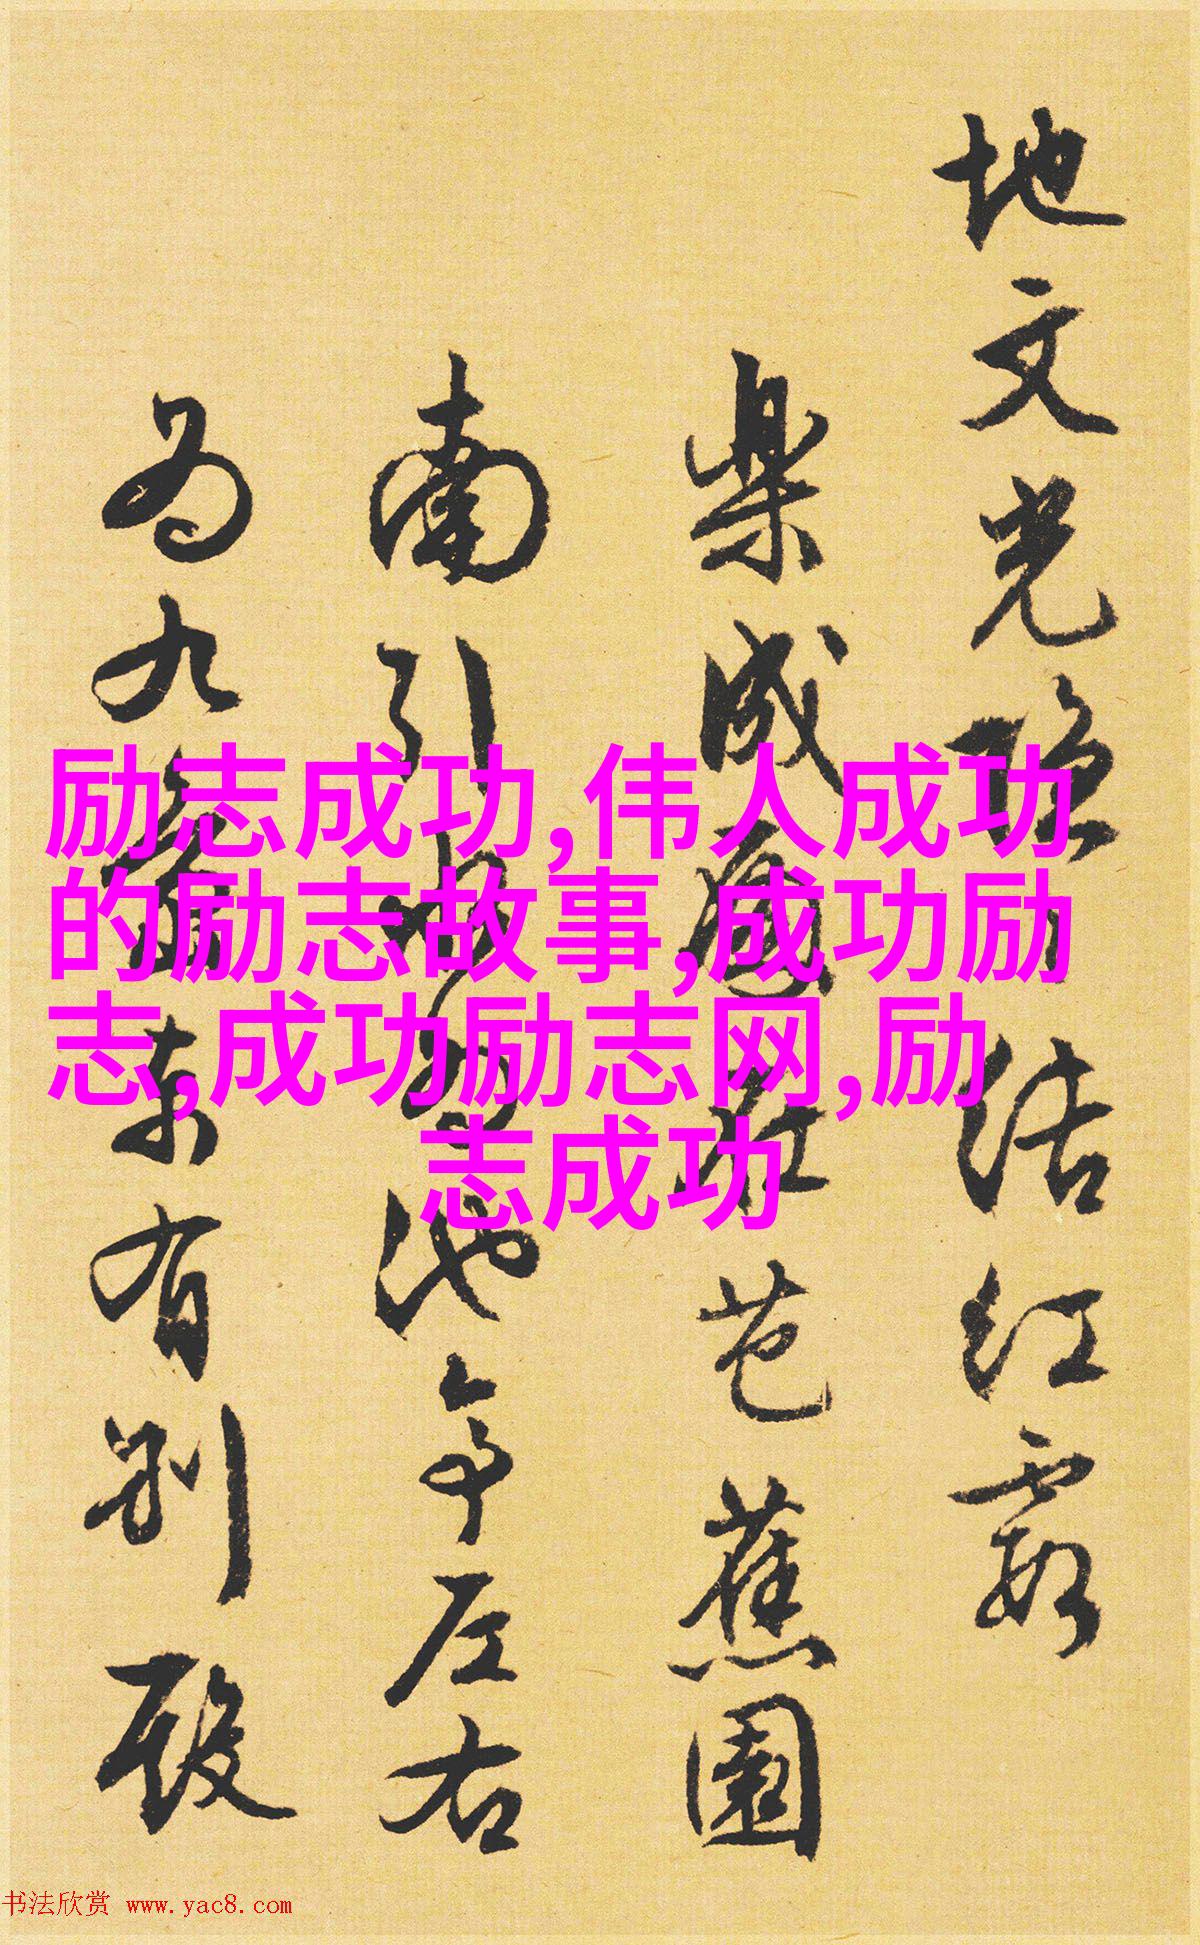 地文光结红霞
樂成芭蕉園
南引池亭左右
為九東有别殿
励志成功,伟人成功
的励志故事,成功励
志,成功励志网,励
志成功
书法欣赏 www.yac8.com